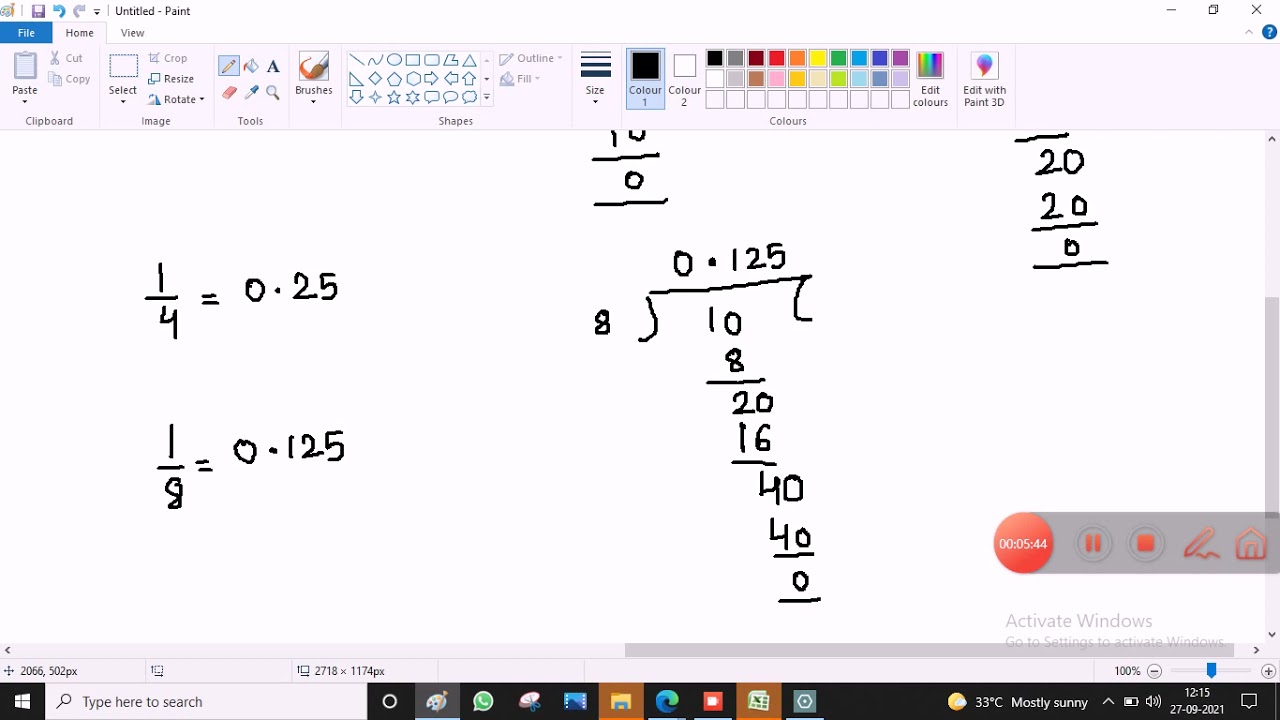 Untitled - Paint
File Home View
Paste Cut Copy Clipboard
Select Crop Resize Rotate Image
A Tools
Brushes
Outline Fill Shapes
Size
Colour 1 Colour 2 Edit colours Colours
Edit with Paint 3D
10
0
20
20
0
1/4 = 0.25
0.125
8 ) 10 (
8
20
16
40
40
0
1/8 = 0.125
00:05:44
Activate Windows
Go to Settings to activate Windows.
2066, 502px 2718 × 1174px 100%
Type here to search
33°C Mostly sunny
12:15
27-09-2021